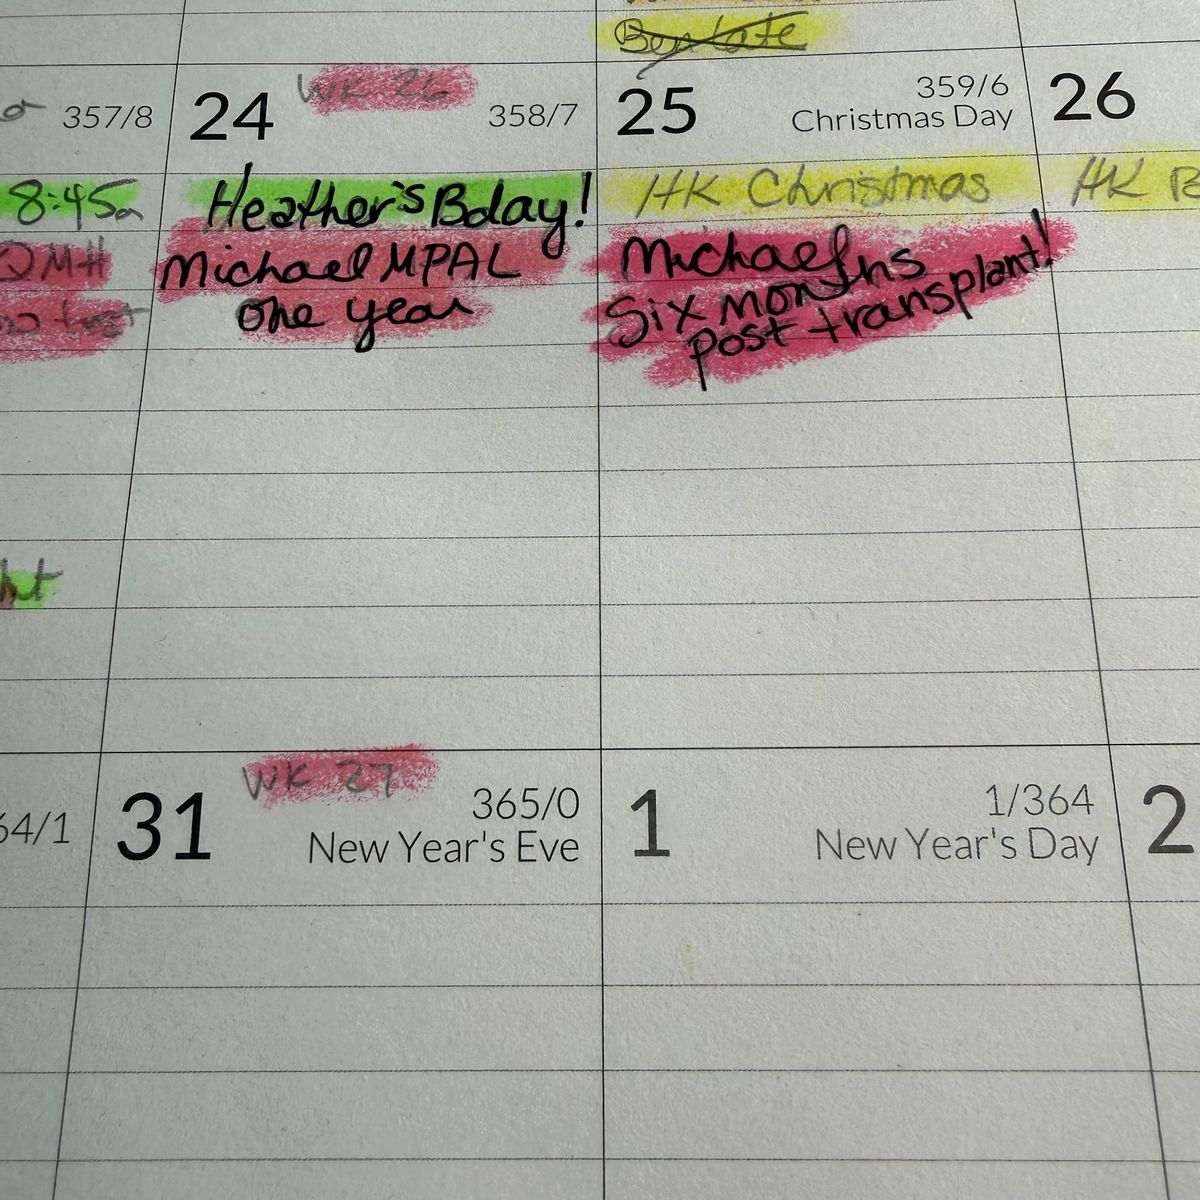 WK 26
357/8
24
358/7
25
359/6
Christmas Day
26
8:45a
Heather's Bday!
HK Christmas
HK B
QMH
Michael MPAL
one year
Michael
Six months
post transplant!
ht
WK 27
64/1
31
365/0
New Year's Eve
1
1/364
New Year's Day
2